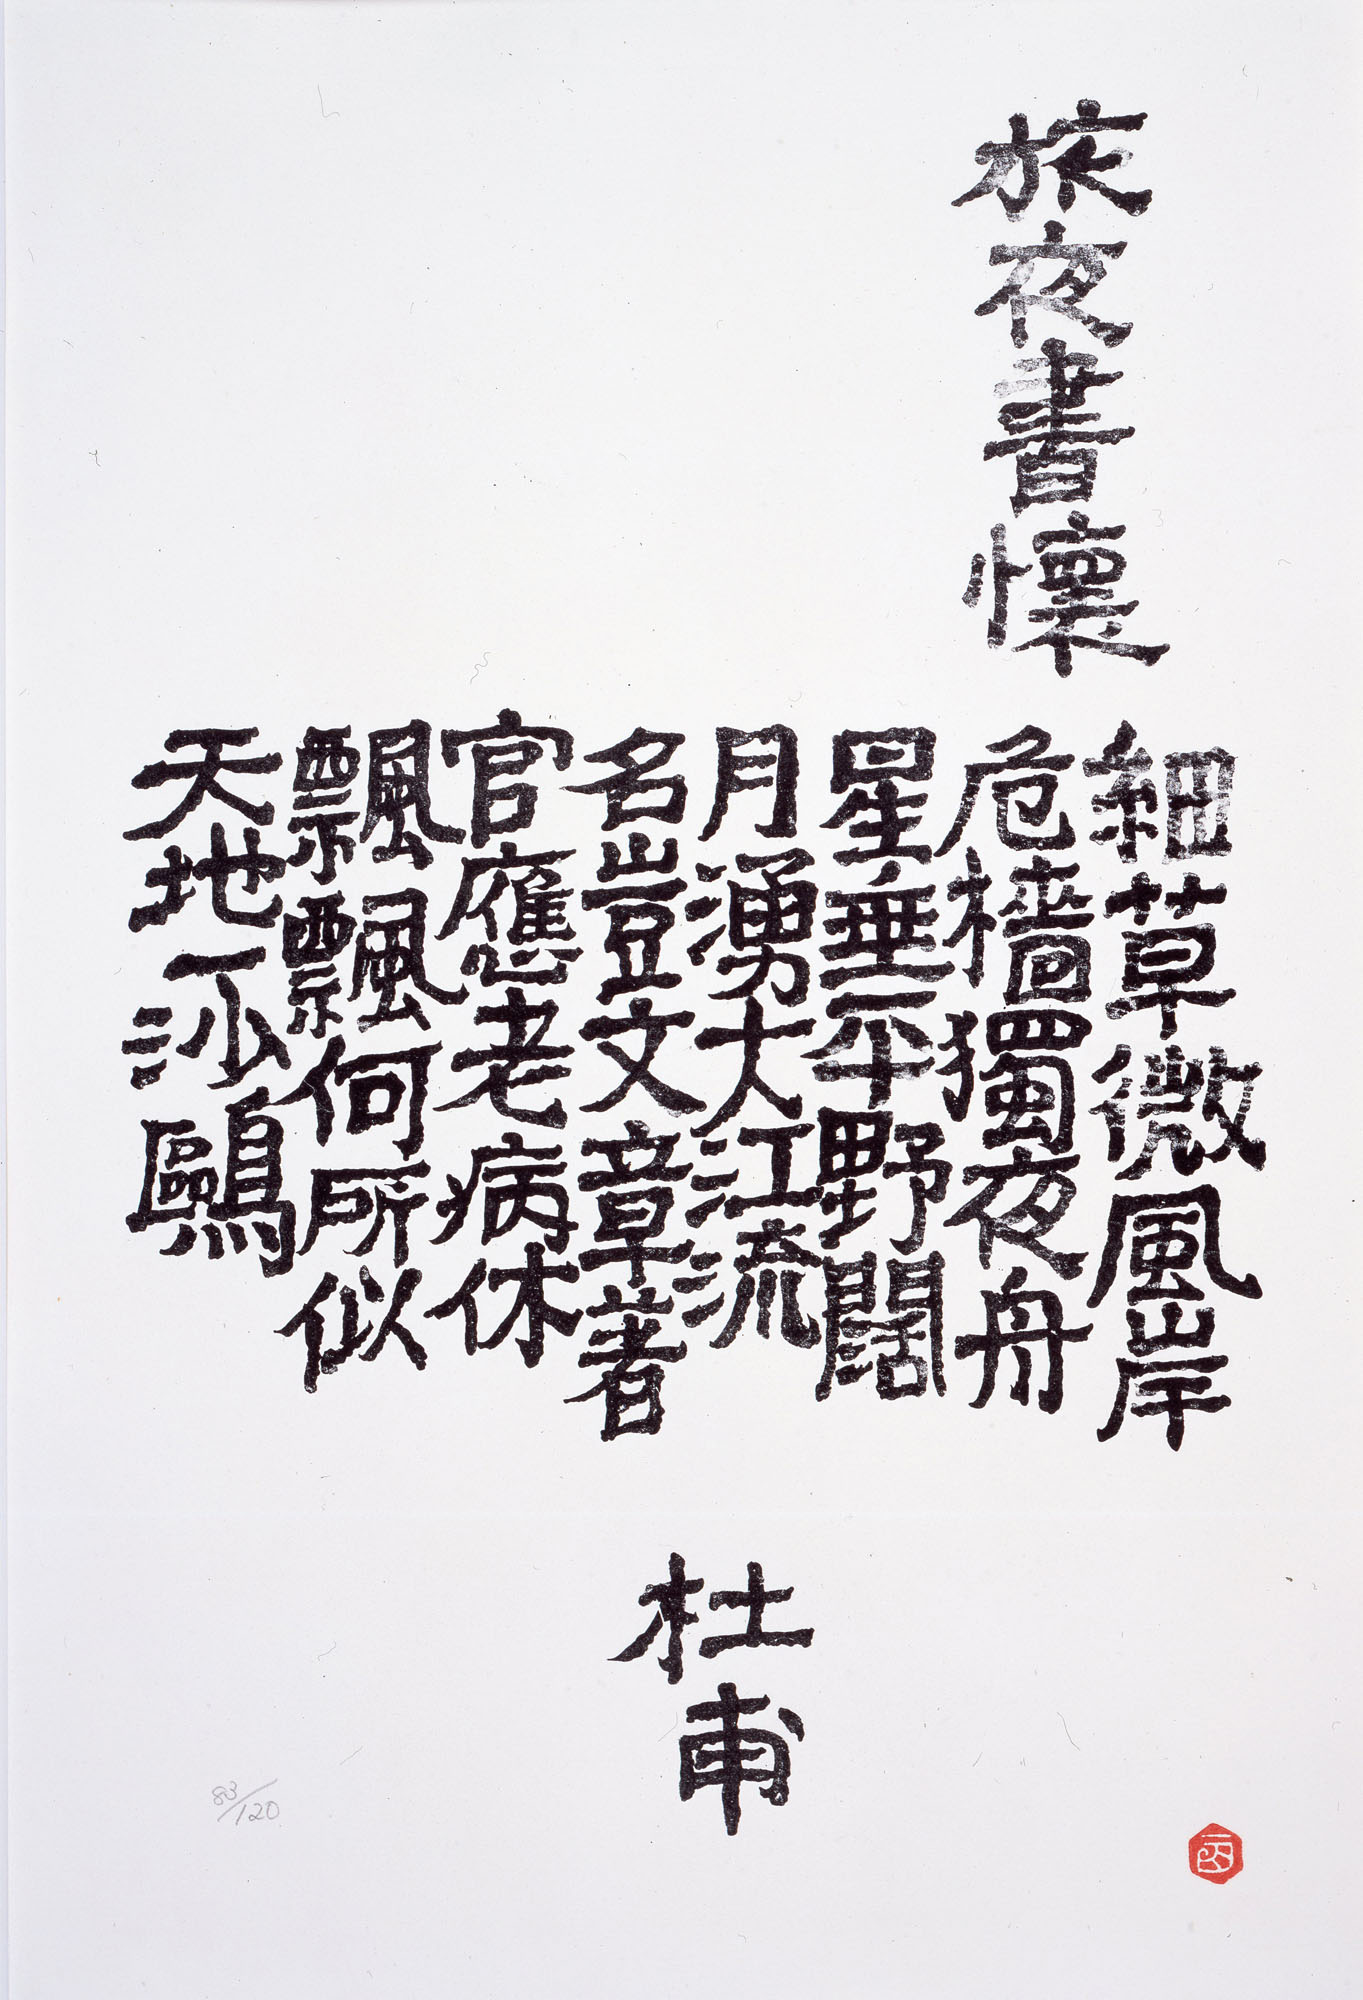 旅夜書懷
細草微風岸
危檣獨夜舟
星垂平野闊
月湧大江流
名豈文章著
官應老病休
飄飄何所似
天地一沙鷗
杜甫
83/120